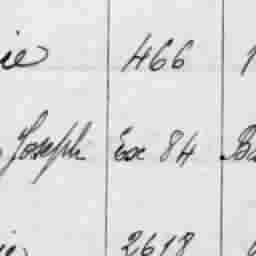 ie 466 1
Joseph Ex 84 Ba
ie 2618